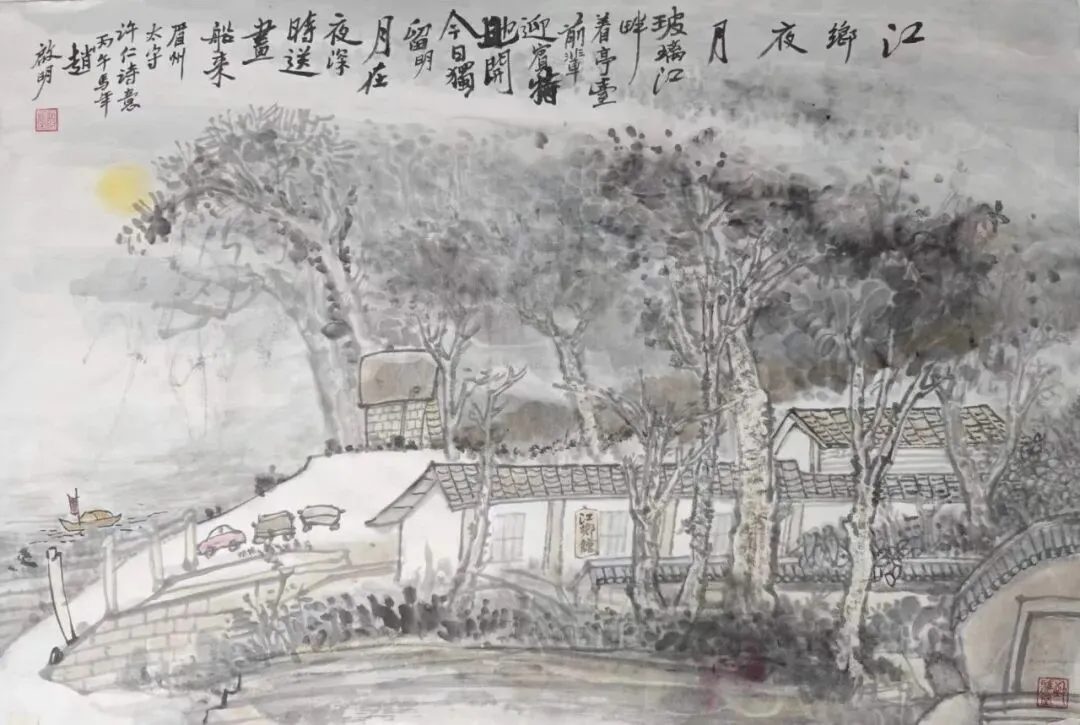 江鄉夜月
玻璃江
畔
着亭臺
前輩
迎賓特
地開
今日獨
留明
月在
夜深
時送
畫
船来
眉州
太守
许仁诗意
丙午马年
趙
啟明
江鄉館